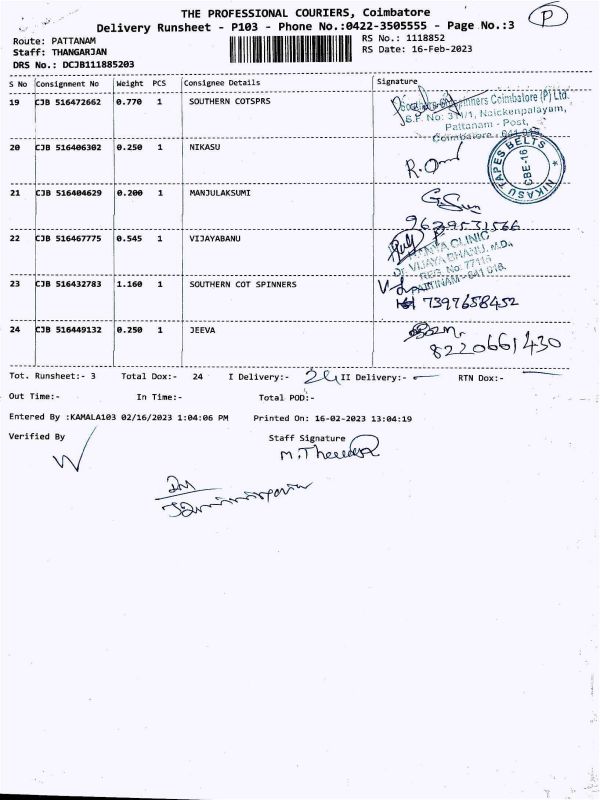 THE PROFESSIONAL COURIERS, Coimbatore
Delivery Runsheet - P103 - Phone No.:0422-3505555 - Page No.:3
P
Route: PATTANAM
RS No.: 1118852
Staff: THANGARJAN
RS Date: 16-Feb-2023
DRS No.: DCJB111885203
S No Consignment No Weight PCS Consignee Details Signature
19 CJB 516472662 0.770 1 SOUTHERN COTSPRS
Coimbatore (P) Ltd.
S.F. No: 311/1, Naickenpalayam,
Pattanam - Post,
Coimbatore
20 CJB 516406302 0.250 1 NIKASU
NIKASU TAPES BELTS
CBE-16
21 CJB 516404629 0.200 1 MANJULAKSUMI
9629531566
22 CJB 516467775 0.545 1 VIJAYABANU
CLINIC
Dr. VIJAYA BHANU, M.D.,
REG. No: 77116
PATTINAM - 641 016.
23 CJB 516432783 1.160 1 SOUTHERN COT SPINNERS
7397658452
24 CJB 516449132 0.250 1 JEEVA
8220661430
Tot. Runsheet:- 3 Total Dox:- 24 I Delivery:- 24 II Delivery:- RTN Dox:-
Out Time:- In Time:- Total POD:-
Entered By :KAMALA103 02/16/2023 1:04:06 PM Printed On: 16-02-2023 13:04:19
Verified By Staff Signature